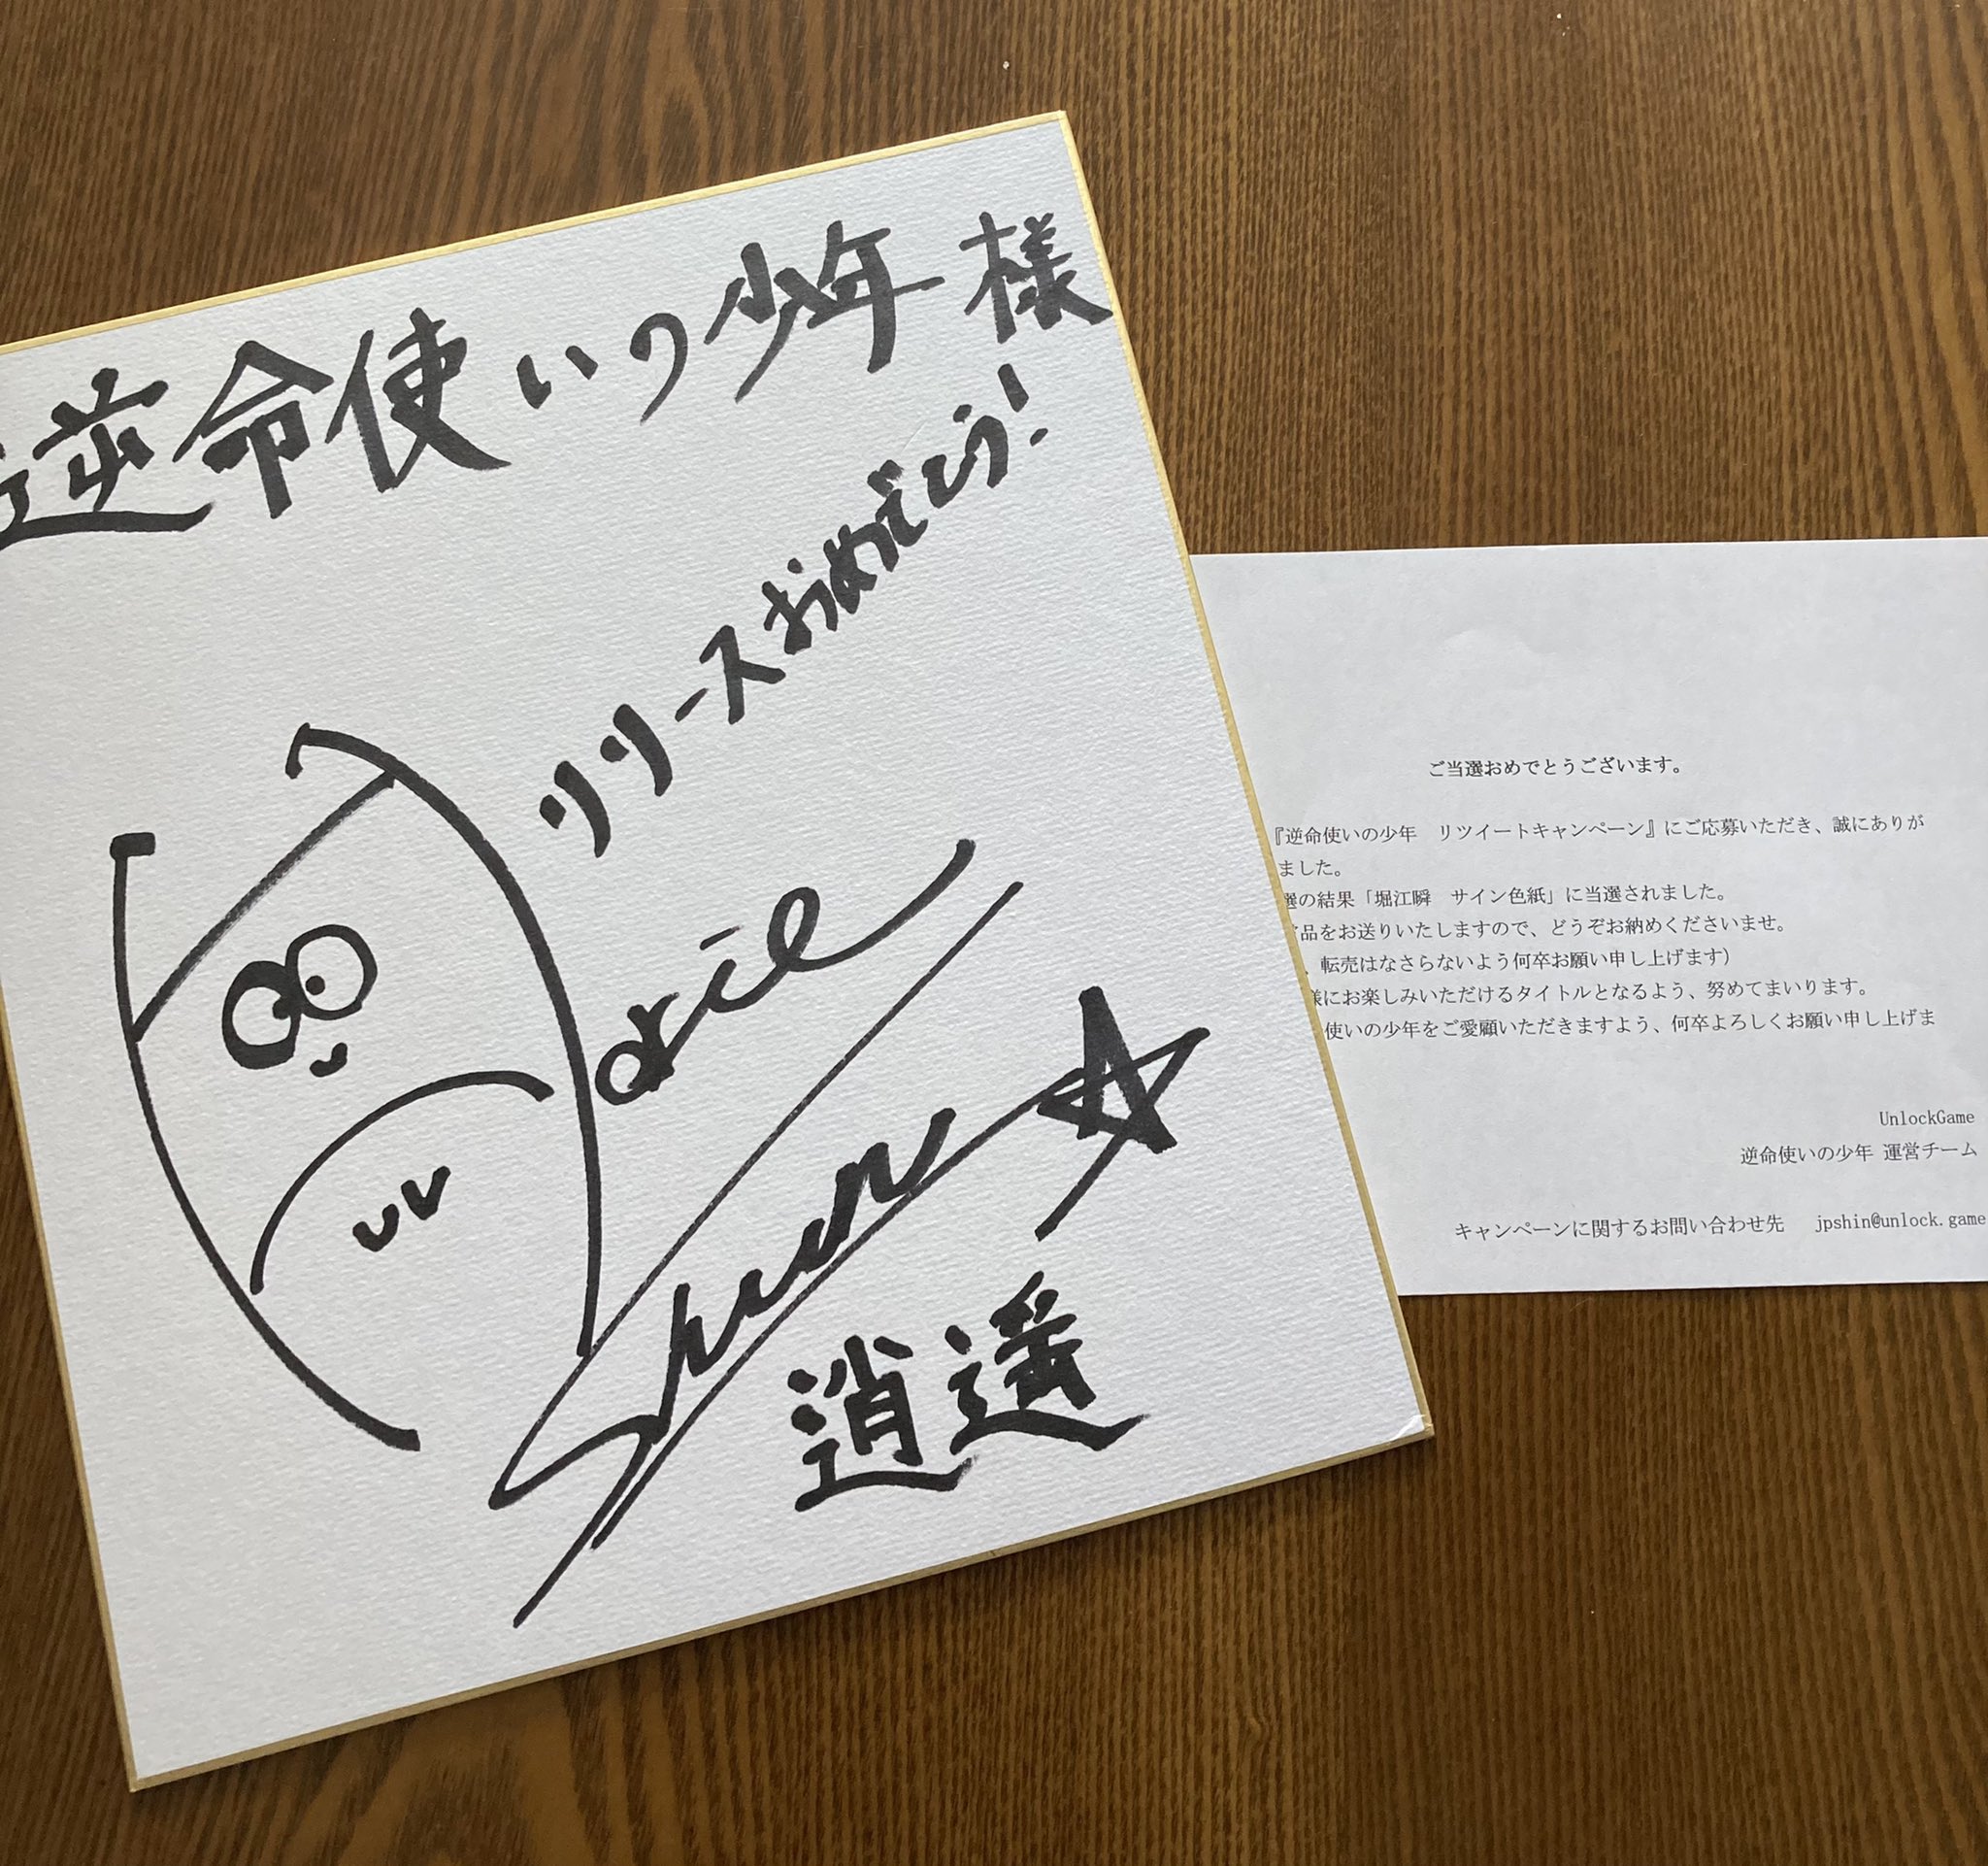 逆命使いの少年様
リリースおめでとう!
Horie
Shun
逍遥
ご当選おめでとうございます。
『逆命使いの少年　リツイートキャンペーン』にご応募いただき、誠にありが
ました。
選の結果「堀江瞬　サイン色紙」に当選されました。
品をお送りいたしますので、どうぞお納めくださいませ。
、転売はなさらないよう何卒お願い申し上げます）
様にお楽しみいただけるタイトルとなるよう、努めてまいります。
使いの少年をご愛顧いただきますよう、何卒よろしくお願い申し上げま
UnlockGame
逆命使いの少年 運営チーム
キャンペーンに関するお問い合わせ先　jpshin@unlock.game